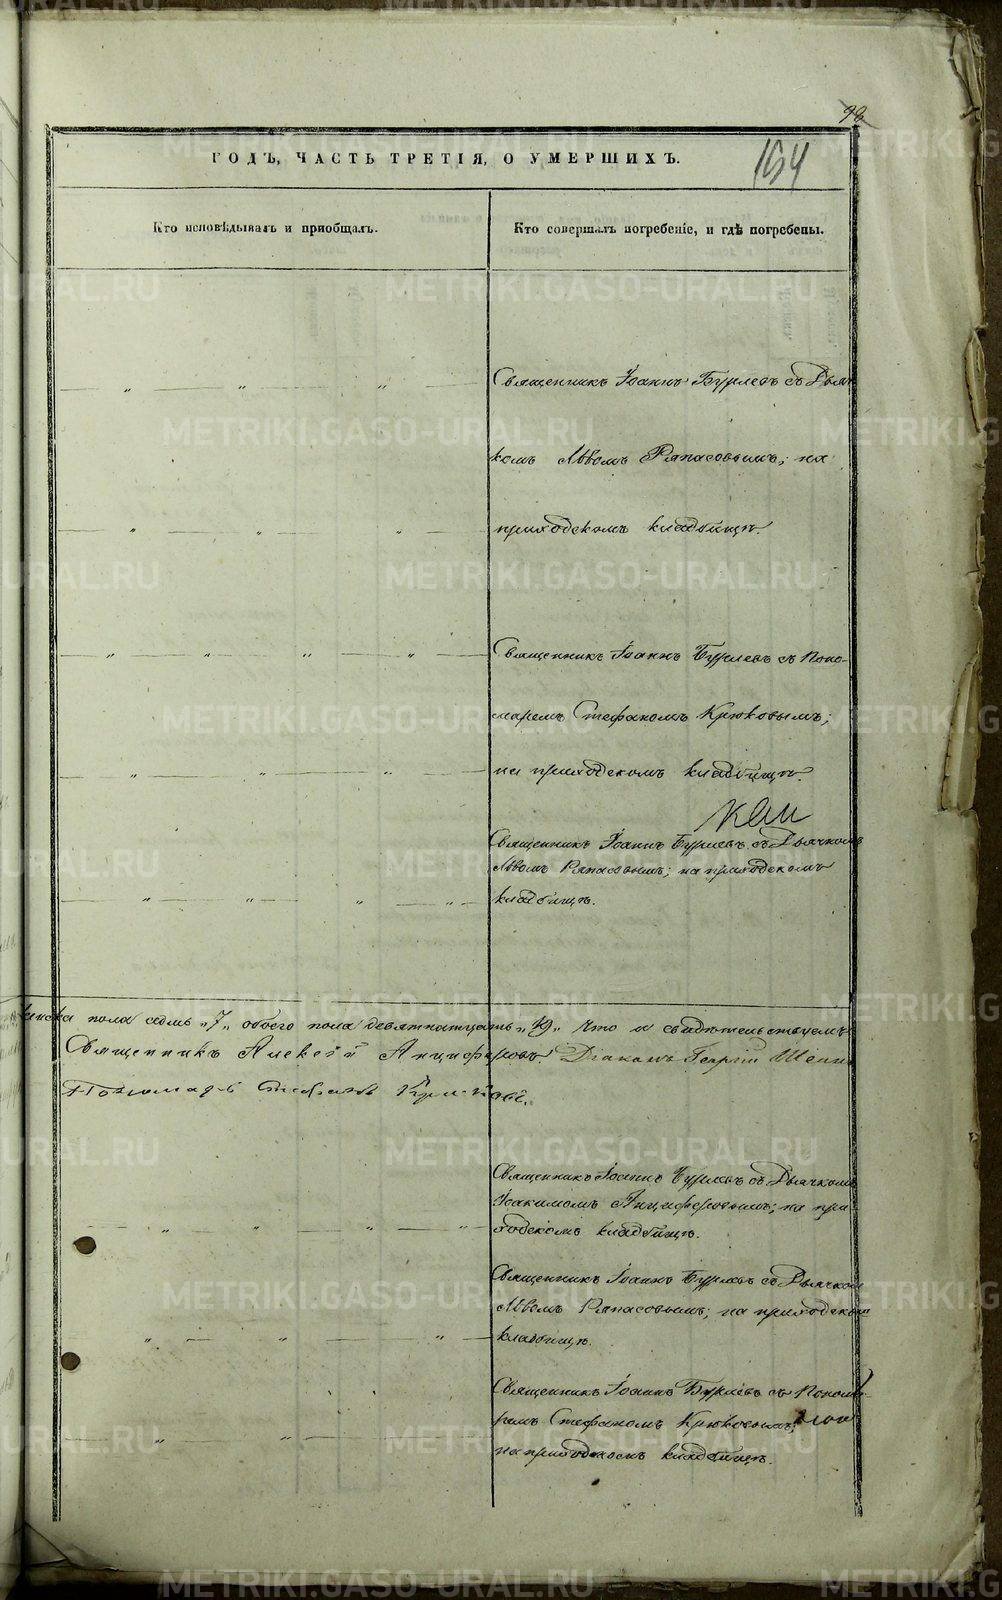 98
ГОДЪ, ЧАСТЬ ТРЕТІЯ, О УМЕРШИХЪ.
154
Кто исповѣдывалъ и приобщалъ.
Кто совершалъ погребеніе, и гдѣ погребены.
Священникъ Іоаннъ Бурлевъ съ Дьяч-
комъ Львомъ Ряпасовымъ; на
приходскомъ кладбищѣ.
Священникъ Іоаннъ Бурлевъ съ Поно-
маремъ Стефаномъ Крюковымъ;
на приходскомъ кладбищѣ.
Священникъ Іоаннъ Бурлевъ съ Дьячкомъ
Львомъ Ряпасовымъ; на приходскомъ
кладбищѣ.
женска пола седмь „7„ обоего пола девятнатцать „19„ Что и свидѣтельствуемъ
Священникъ Алексѣй Анциферовъ Діаконъ Георгій
Пономарь Стефанъ Крюковъ.
Священникъ Іоаннъ Бурлевъ съ Дьячкомъ
Іоакимомъ Анциферовымъ; на при-
ходскомъ кладбищѣ.
Священникъ Іоаннъ Бурлевъ съ Дьячкомъ
Львомъ Ряпасовымъ; на приходскомъ
кладбищѣ.
Священникъ Іоаннъ Бурлевъ съ Понома-
ремъ Стефаномъ Крюковымъ;
на приходскомъ кладбищѣ.
METRIKI.GASO-URAL.RU